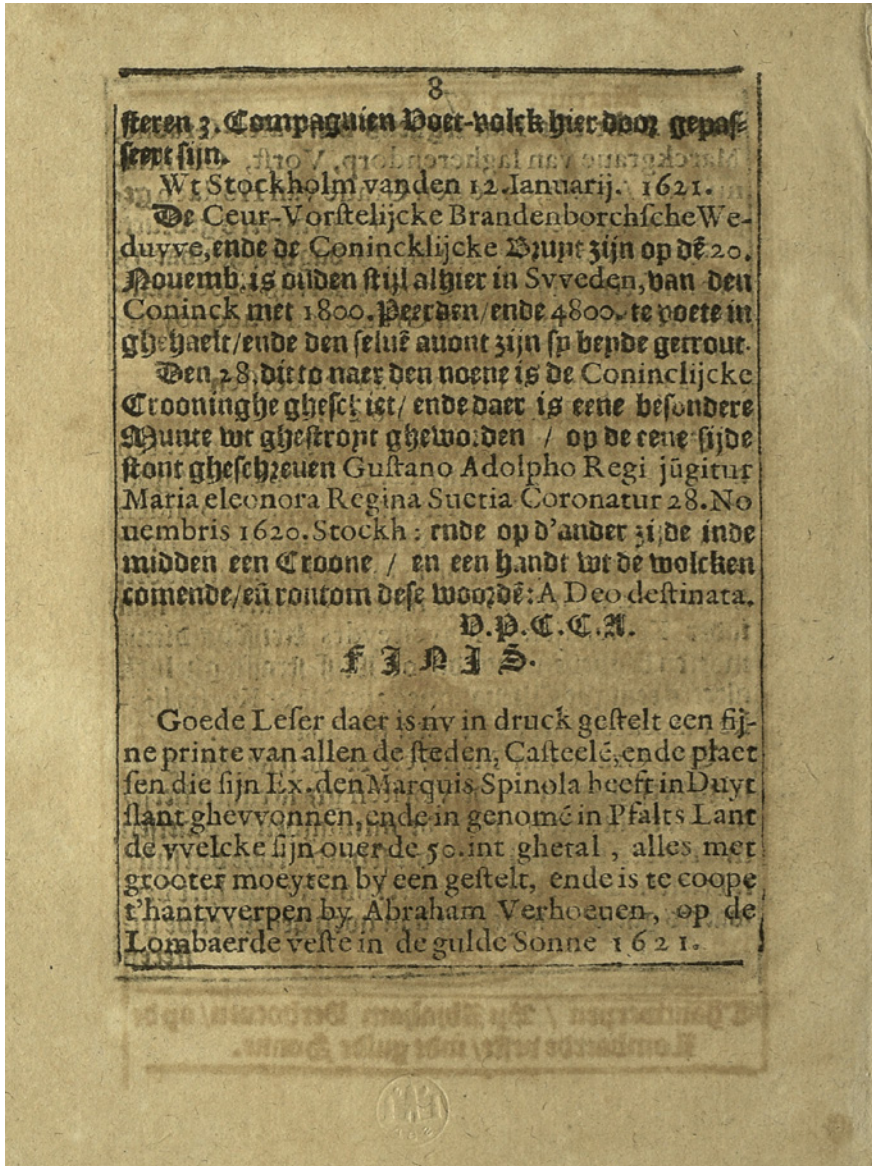 8
steren 3. Compagnien Voet-volck hier door gepas-
seert sijn.
Wt Stockholm vanden 12. Ianuarij. 1621.
De Ceur-Vorstelijcke Brandenborchsche We-
duyve, ende de Conincklijcke Bruyt zijn op dē 20.
Nouemb. is ouden stijl alhier in Svveden, van den
Coninck met 1800. Peerden / ende 4800. te voete in
ghehaelt / ende den seluē auont zijn sy beyde getrout.
Den 28. ditto naer den noene is de Coninclijcke
Crooninghe gheschiet / ende daer is eene besondere
Munte wt ghestroyt gheworden / op de eene sijde
stont gheschreuen Gustano Adolpho Regi jūgitur
Maria eleonora Regina Suetia Coronatur 28. No
uembris 1620. Stockh: ende op d'ander zijde inde
midden een Croone / en een handt wt de wolcken
comende / eñ rontom dese woordē: A Deo destinata.
V.P.C.C.A.
FINIS.
Goede Leser daer is nv in druck gestelt een fij-
ne printe van allen de steden, Casteelē, ende plaet
sen die sijn Ex. den Marquis Spinola heeft in Duyt
slant ghevvonnen, ende in genomē in Pfalts Lant
de vvelcke sijn ouer de 50. int ghetal, alles met
grooter moeyten by een gestelt, ende is te coope
t'hantvverpen by Abraham Verhoeuen, op de
Lombaerde veste in de gulde Sonne 1621.